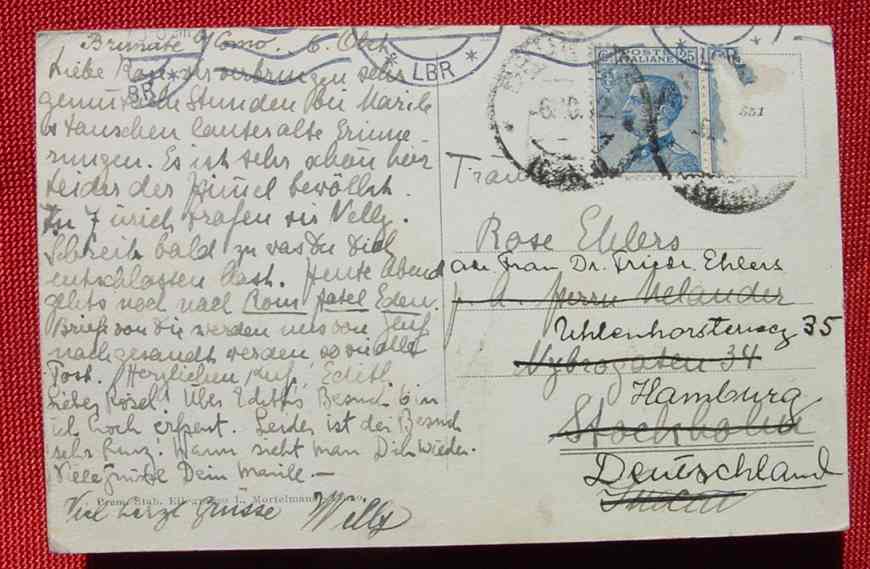 Brunate s/Como. 6. Okt.
Liebe Rose, wir verbringen sehr
gemütliche Stunden bei Marile
u. tauschen lauter alte Erinne
rungen. Es ist sehr schön hier
leider der Himmel bewölkt.
In Zürich trafen wir Nelly.
Schreib bald zu was Du Dich
entschlossen hast. Heute Abend
gehts noch nach Rom Hotel Eden.
Briefe von Dir werden uns von Genf
nachgesandt werden sowie alle
Post. Herzlichen Kuß, Edith
Liebes Rösel! Über Ediths Besuch bin
ich hoch erfreut. Leider ist der Besuch
sehr kurz! Wann sieht man Dich wieder.
Viele Grüße Dein Marile –
Prem. Stab. L. Mortelman
Viel herzl Grüsse Willy
LBR
BR
POSTE
ITALIANE
25
551
Rose Ehlers
an Frau Dr. Friedr. Ehlers
p. a. Herrn Melander
Uhlenhorsterweg 35
Nybrogatan 34
Hamburg
Stockholm
Deutschland